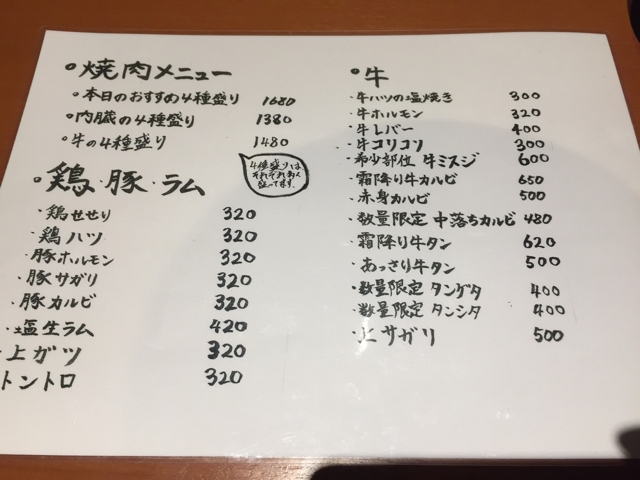 ・焼肉メニュー
・本日のおすすめ4種盛り 1680
・内臓の4種盛り 1380
・牛の4種盛り 1480
4種盛りは
それぞれ
なってます。
・鶏・豚・ラム
・鶏せせり 320
・鶏ハツ 320
・豚ホルモン 320
・豚サガリ 320
・豚カルビ 320
・塩生ラム 420
・上ガツ 320
トントロ 320
・牛
・牛ハツの塩焼き 300
・牛ホルモン 320
・牛レバー 400
・牛コリコリ 300
・希少部位 牛ミスジ 600
・霜降り牛カルビ 650
・赤身カルビ 500
・数量限定 中落ちカルビ 480
・霜降り牛タン 620
・あっさり牛タン 500
・数量限定 タンゲタ 400
・数量限定 タンシタ 400
・上サガリ 500